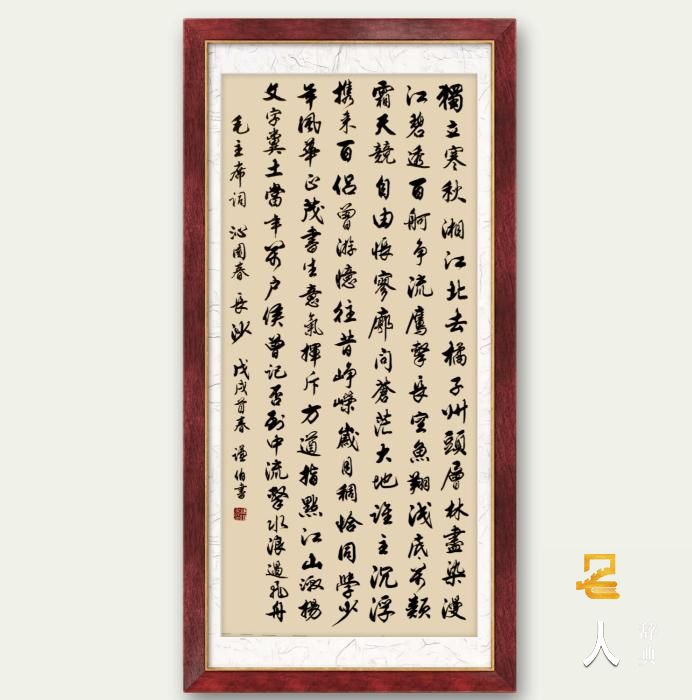 獨立寒秋湘江北去橘子州頭層林盡染漫
江碧透百舸爭流鷹擊長空魚翔浅底萬類
霜天競自由悵寥廓問蒼茫大地誰主沉浮
携来百侶曾游憶往昔崢嶸歲月稠恰同學少
年風華正茂書生意氣揮斥方遒指點江山激揚
文字糞土當年萬户侯曾記否到中流擊水浪遏飛舟
毛主席词 沁園春 長沙 戊戌首春 谦伯書
名
人
辞典